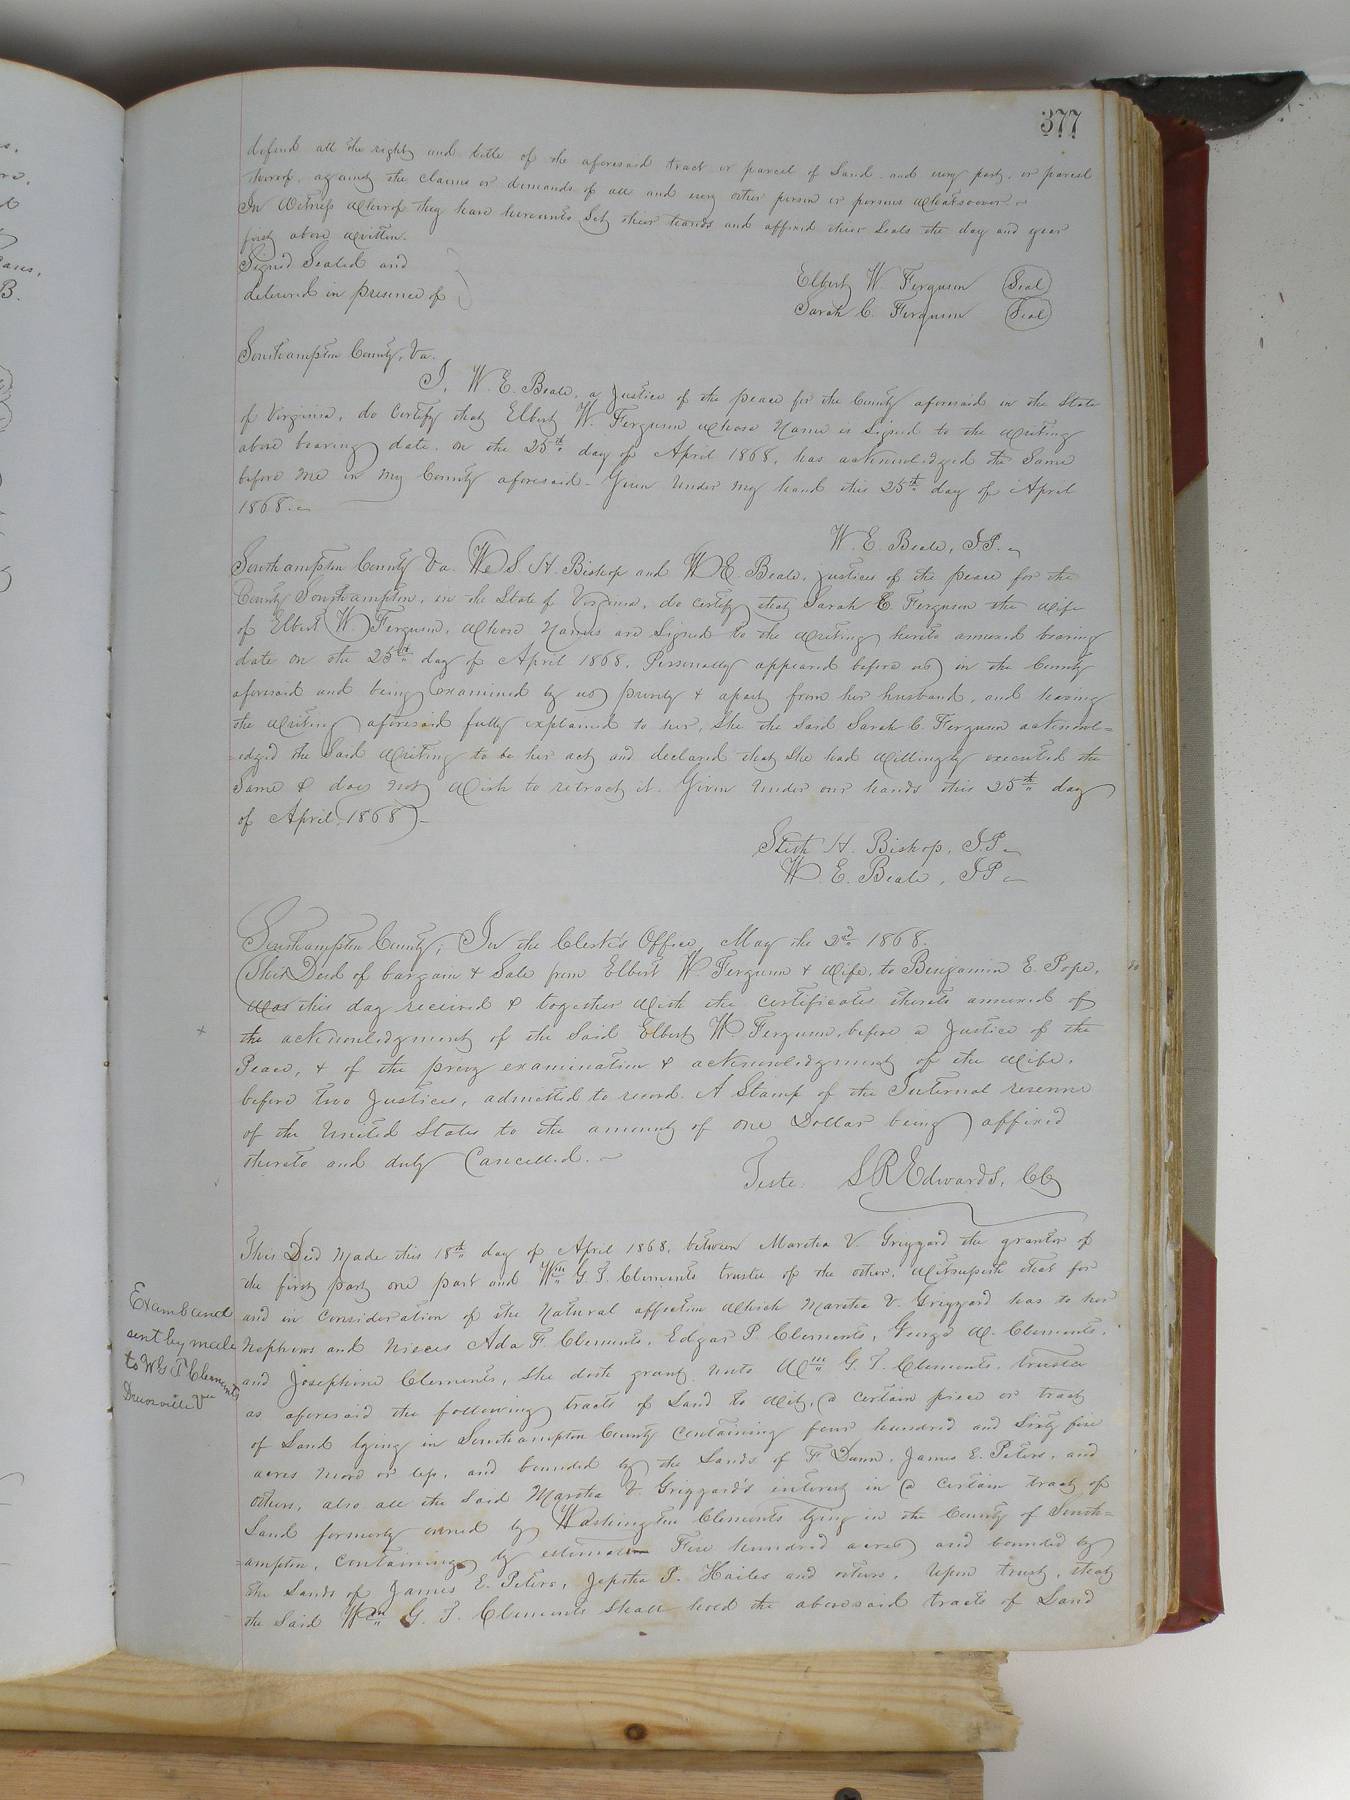 377
defend all the right and title of the aforesaid tract or parcel of Land and every part, or parcel
thereof, against the claims or demands of all and every other person or persons whatsoever
In Witness Whereof they have hereunto Set their hands and affixed their Seals the day and year
first above Written.
Signed Sealed and
delivered in presence of
Elbert W. Ferguson (Seal)
Sarah C. Ferguson (Seal)
Southampton County, Va.
I, W. E. Beale, a Justice of the peace for the County aforesaid in the State
of Virginia, do Certify that Elbert W. Ferguson whose Name is Signed to the Writing
above bearing date, on the 25th day of April 1868, has acknowledged the Same
before me in my County aforesaid - Given Under my hand this 25th day of April
1868.
W. E. Beale, J.P.
Southampton County Va. We S. H. Bishop and W. E. Beale, Justices of the peace for the
County Southampton, in the State of Virginia, do certify that Sarah C. Ferguson the Wife
of Elbert W. Ferguson, Whose Names are Signed to the Writing hereto annexed bearing
date on the 25th day of April 1868, Personally appeared before us in the County
aforesaid and being examined by us privily & apart from her husband, and having
the Writing aforesaid fully explained to her, She the Said Sarah C. Ferguson acknowl=
=edged the Said Writing to be her act and declared that She had Willingly executed the
Same & does not Wish to retract it. Given Under our hands this 25th day
of April, 1868 -
Stith H. Bishop, J.P.
W. E. Beale, J.P.
Southampton County, In the Clerk's Office, May the 2d 1868.
This Deed of bargain & Sale from Elbert W. Ferguson & Wife, to Benjamin E. Pope,
Was this day received & together With the certificates thereto annexed of
the acknowledgment of the Said Elbert W. Ferguson, before a Justice of the
Peace, & of the privy examination & acknowledgment of the Wife,
before two Justices, admitted to record. A Stamp of the Internal revenue
of the United States to the amount of one Dollar being affixed
thereto and duly Cancelled.
Teste. L R Edwards, CC
This Deed Made this 18th day of April 1868, between Martha V. Griggard the grantor of
the first part one part and Wm G. T. Clements trustee of the other, Witnesseth that for
and in Consideration of the Natural affection Which Martha V. Griggard has to her
Nephews and Nieces Ada F. Clements, Edgar P. Clements, George W. Clements,
and Josephine Clements, She doth grant unto Wm G. T. Clements, trustee
as aforesaid the following tracts of Land to Wit, a certain piece or tract
of Land lying in Southampton County Containing four hundred and Sixty five
acres More or less, and bounded by the Lands of F. Dunn, James E. Peters, and
others, also all the Said Martha V. Griggard's interest in a Certain tract of
Land formerly owned by Washington Clements lying in the County of South=
=ampton, Containing by estimate Five hundred acres and bounded by
the Lands of James E. Peters, Jeptha P. Hailes and others, Upon trust, that
the Said Wm G. T. Clements Shall hold the aforesaid tracts of Land
Examd and
sent by mail
to W G T Clements